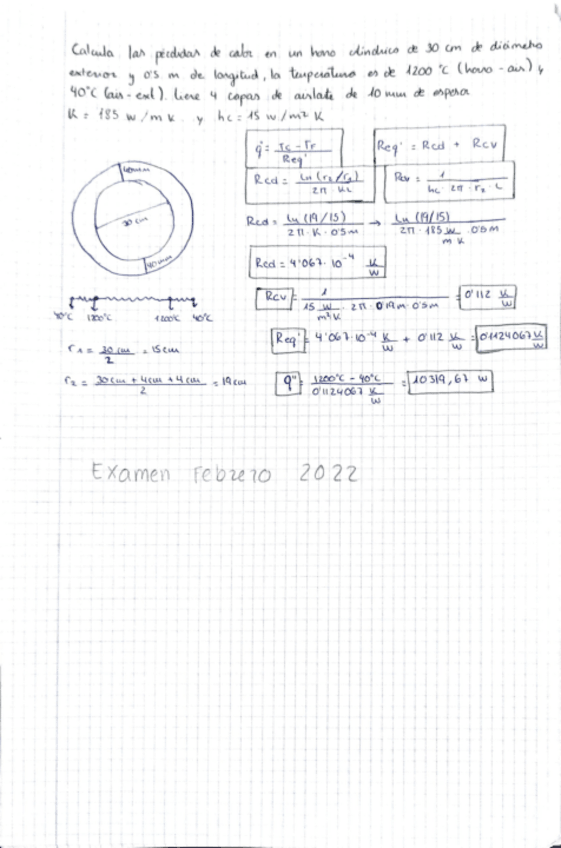 Calcula las pérdidas de calor en un horno cilíndrico de 30 cm de diámetro
exterior y 0'5 m de longitud, la temperatura es de 1200 °C (horno - air) y
40°C (air - ext). tiene 4 capas de aislate de 10 mm de espesor
K = 185 w/m k y hc = 15 w/m² K
q̇ = Tc - Tf / Req'
Req' = Rcd + Rcv
Rcd = Ln (r2/r1) / 2π · K L
Rcv = 1 / hc · 2π · r2 · L
40mm
30 cm
40mm
Rcd = Ln (19/15) / 2π · K · 0'5m → Ln (19/15) / 2π · 185 w/m K · 0'5m
Rcd = 4'067 · 10⁻⁴ K/W
40°C 1200°C 1200°C 40°C
Rcv = 1 / 15 w/m²K · 2π · 0'19m · 0'5m = 0'112 K/W
r1 = 30 cm / 2 = 15cm
Req' = 4'067 · 10⁻⁴ K/W + 0'112 K/W = 0'1124067 K/W
r2 = 30cm + 4cm + 4cm / 2 = 19cm
q̇ = 1200°C - 40°C / 0'1124067 K/W = 10319,67 W
Examen Febrero 2022